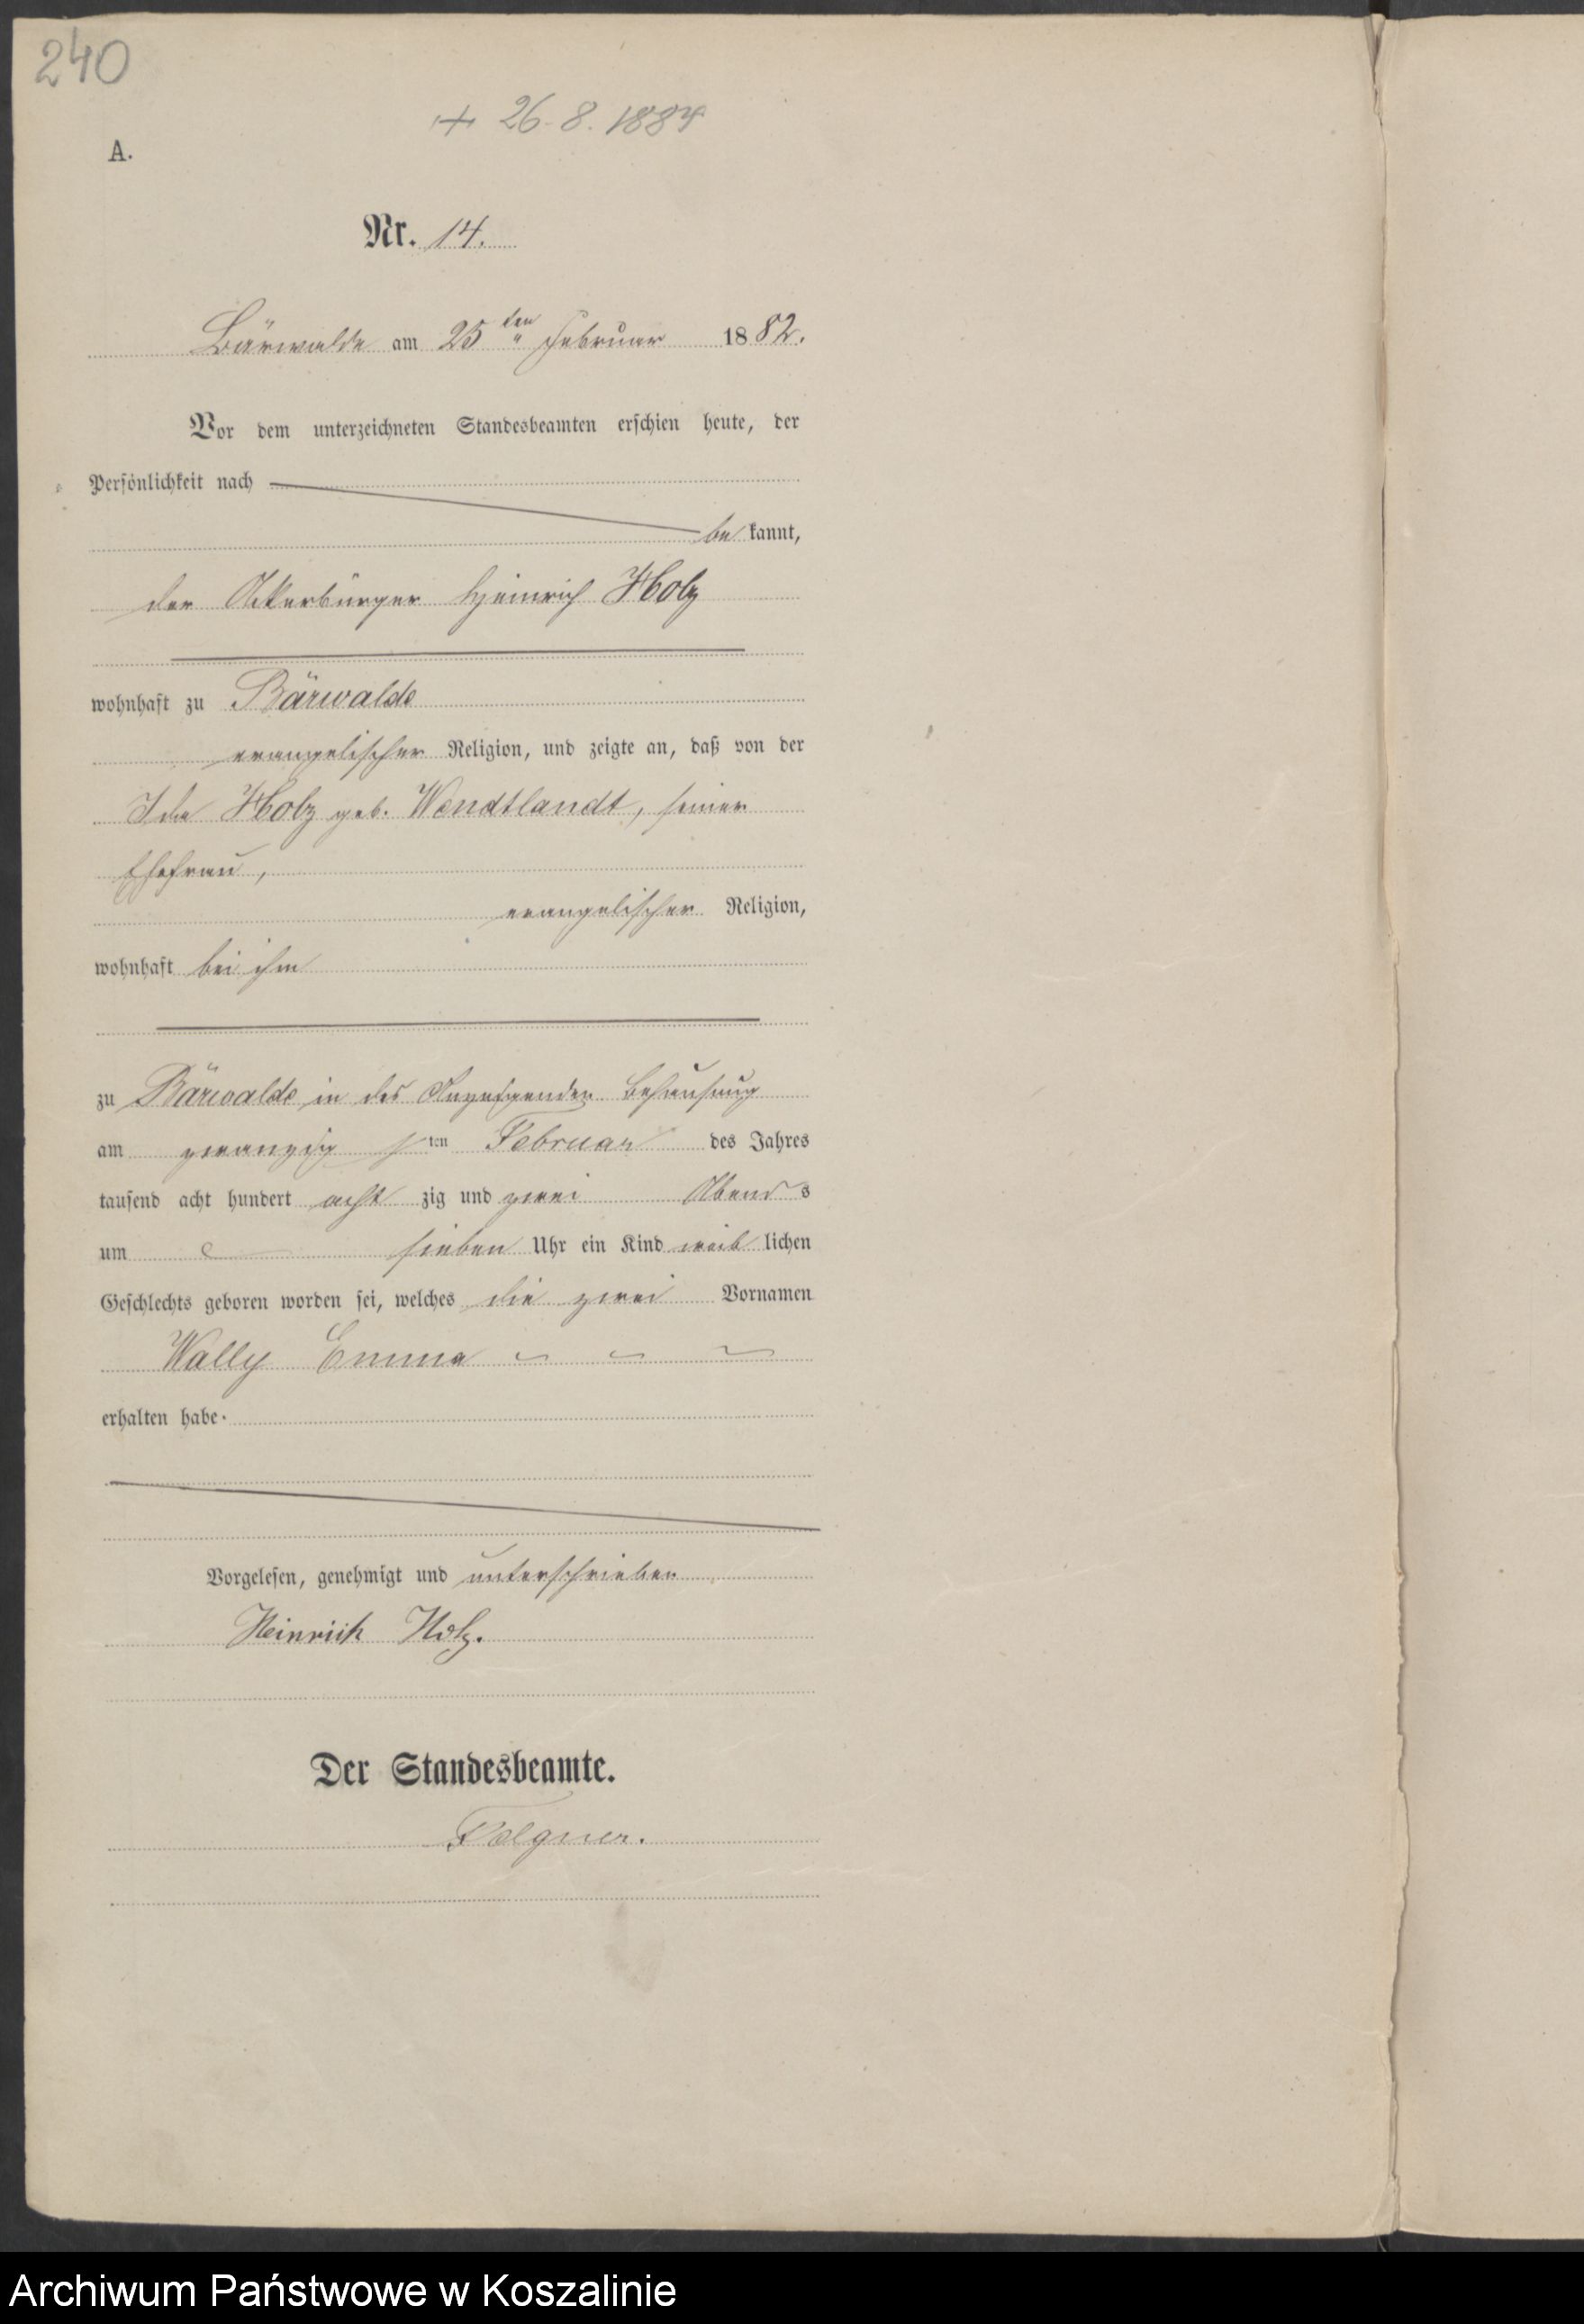 240
+ 26.8.1884
A.
Nr. 14.
Bärwalde am 25ten Februar 1882.
Vor dem unterzeichneten Standesbeamten erschien heute, der
Persönlichkeit nach
be kannt,
der Ackerbürger Heinrich Holz
wohnhaft zu Bärwalde
evangelischer Religion, und zeigte an, daß von der
Ida Holz geb. Wendtlandt, seiner
Ehefrau,
evangelischer Religion,
wohnhaft bei ihm
zu Bärwalde in des Anzeigenden Behausung
am zwanzig sten Februar des Jahres
tausend acht hundert acht zig und zwei Abend s
um sieben Uhr ein Kind weib lichen
Geschlechts geboren worden sei, welches die zwei Vornamen
Wally Emma
erhalten habe.
Vorgelesen, genehmigt und unterschrieben
Heinrich Holz.
Der Standesbeamte.
Folgner.
Archiwum Państwowe w Koszalinie